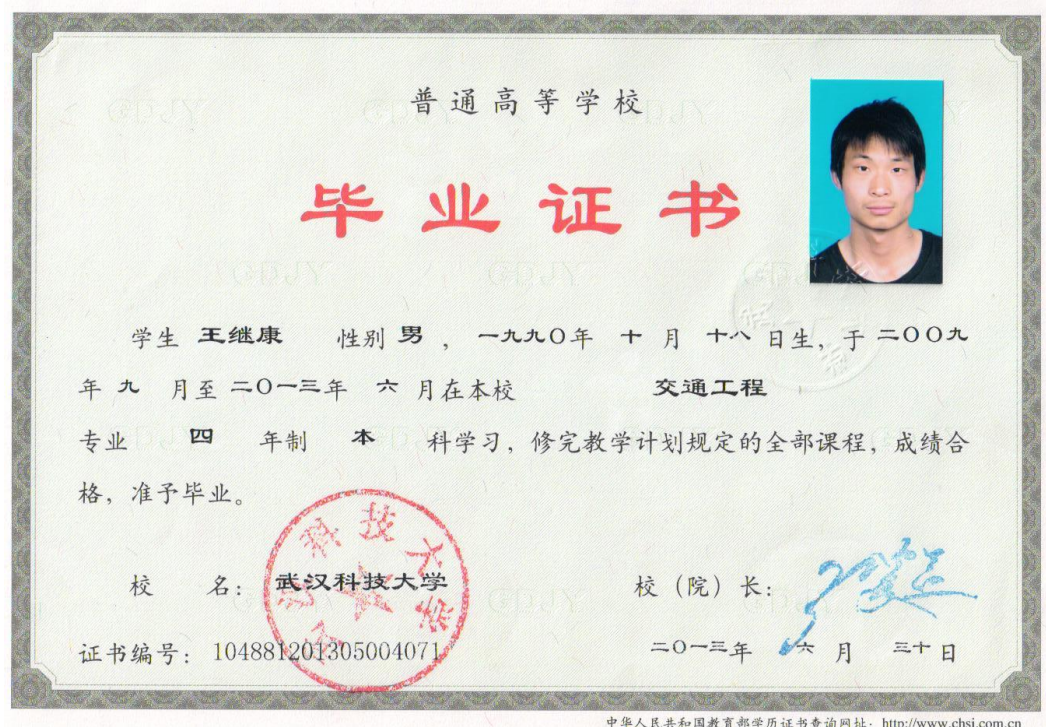 普通高等学校
毕业证书
学生 王继康 性别 男 ，一九九〇年 十 月 十八 日生，于 二〇〇九
年 九 月至 二〇一三年 六 月在本校 交通工程
专业 四 年制 本 科学习，修完教学计划规定的全部课程，成绩合
格，准予毕业。
校 名：武汉科技大学
校（院）长：
证书编号：104881201305004071
二〇一三年 六 月 三十 日
中华人民共和国教育部学历证书查询网址：http://www.chsi.com.cn